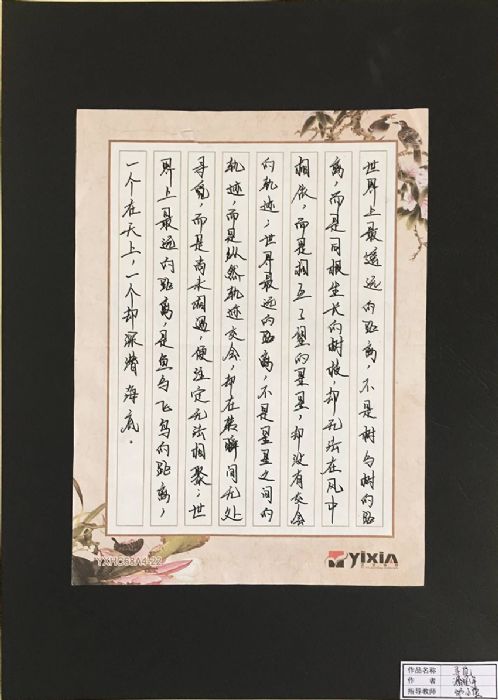 世界上最遥远的距离，不是树与树的距
离，而是同根生长的树枝，却无法在风中
相依，而是相互了望的星星，却没有交会
的轨迹；世界最远的距离，不是星星之间的
轨迹，而是纵然轨迹交会，却在转瞬间无处
寻觅，而是尚未相遇，便注定无法相聚；世
界上最远的距离，是鱼与飞鸟的距离，
一个在天上，一个却深潜海底．
YXHC68A4-22
YIXIN
作品名称
作 者
指导教师